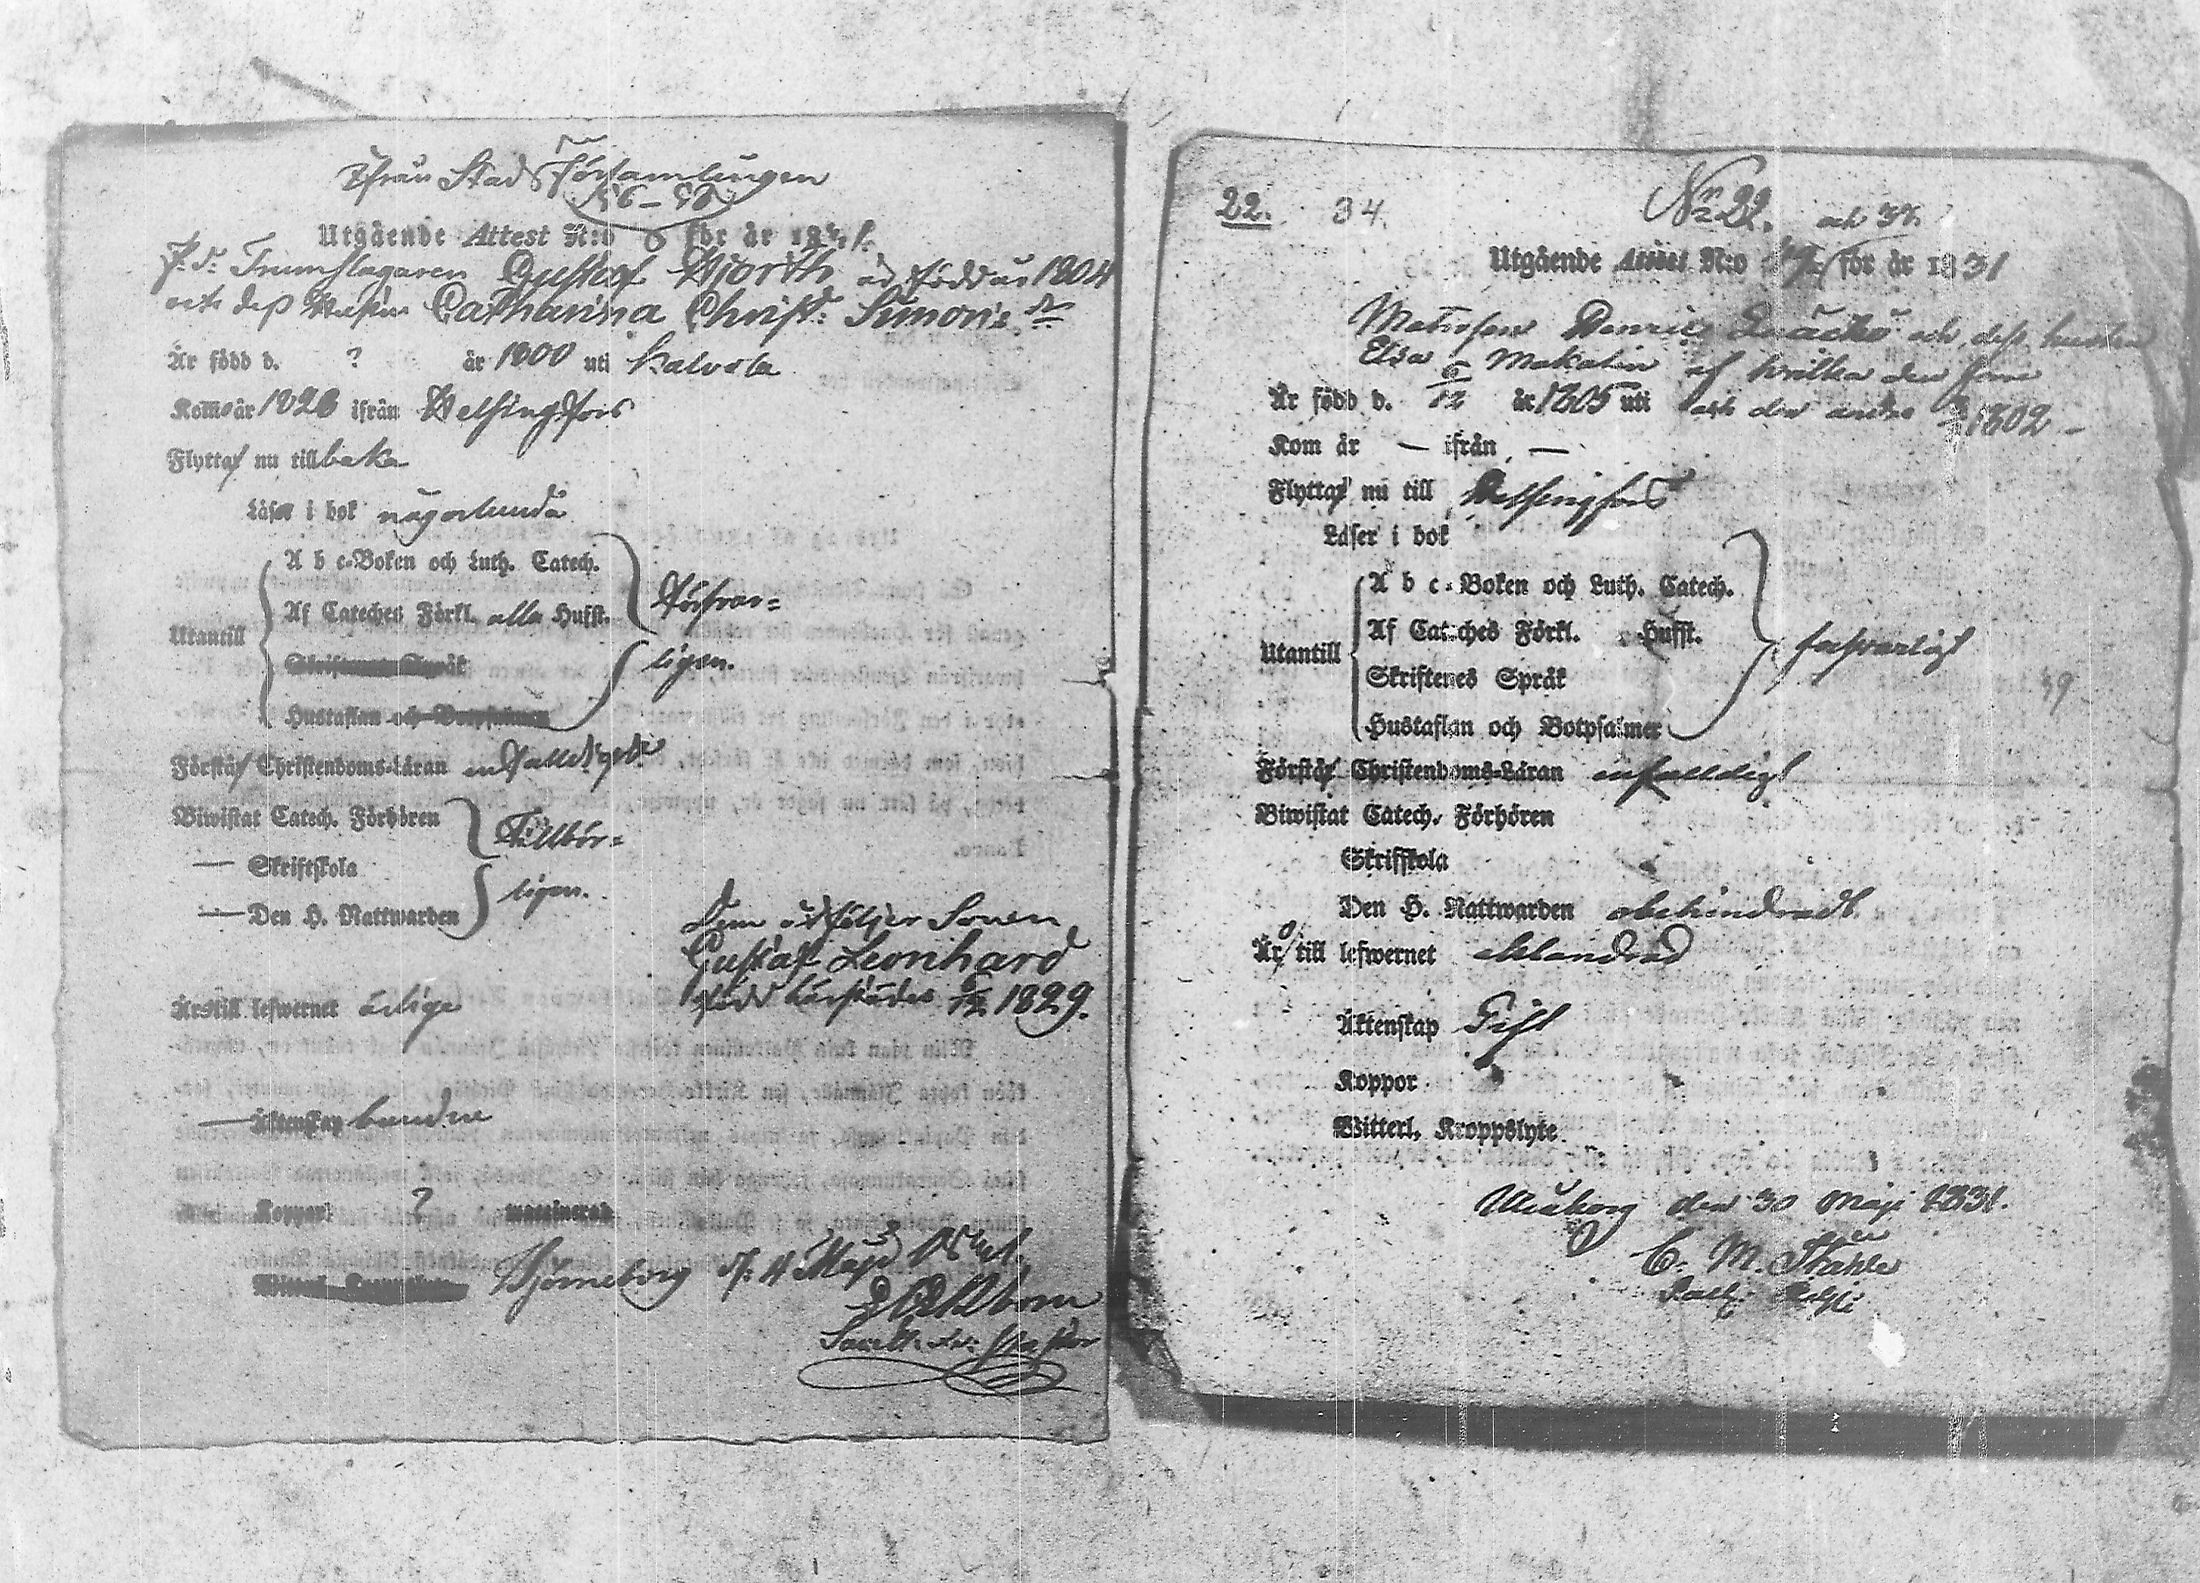 ifrån Stads Församlingen
56-58
Utgående Attest N:o för år 1831.
f. d. Trumslagaren Gustaf Hjorth är född år 1804
och dess Hustru Catharina Christ: Simonsdr
Är född d. ? år 1800 uti Kalvola
Kom år 1828 ifrån Helsingfors
Flytta nu tillbaka
Läser i bok någorlunda
A b c-Boken och Luth. Catech.
Af Cateches Förkl. alla Hufst.
Försvar=
Utantill
Skriftenes Språk
ligen.
Hustaflan och Botpsalmer
Förstå Christendoms-Läran enfalldigt
Biwistat Catech. Förhören
Tillbör=
— Skriftskola
ligen.
— Den H. Nattwarden
Dem åtföljer Sonen
Gustaf Leonhard
född härstädes 1829.
Äro till lefwernet ärlige
— Äktenskap bundne
Koppor ? waccinerad
Björneborg d. 4 Maji 1831.
22. 34.
Nr 22. och 34.
Utgående Attest N:o för år 1831
Matrosen Henric och dess hustru
Elsa Makalin af hvilka den förre
Är född d. 6/12 år 1805 uti och den andra 1802 -
Kom år — ifrån —
Flytta nu till Helsingfors
Läser i bok
A b c-Boken och Luth. Catech.
Af Cateches Förkl. Hufst.
Utantill
försvarligt
Skriftenes Språk
Hustaflan och Botpsalmer
Förstå Christendoms-Läran enfalldigt
Biwistat Catech. Förhören
Skriftskola
Den H. Nattwarden obehindradt
Äro till lefwernet oklandrad
Äktenskap Gift
Koppor
Witterl. Kroppslyte
Uleåborg den 30 Maji 1831.
C. M. Ståhle